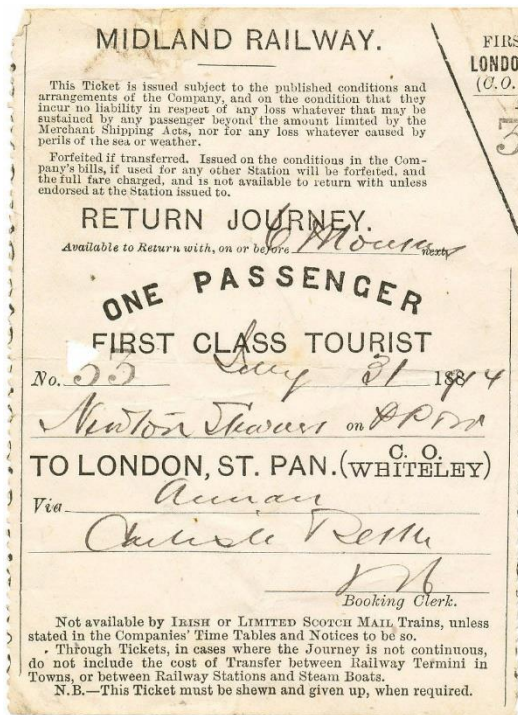 MIDLAND RAILWAY.
This Ticket is issued subject to the published conditions and
arrangements of the Company, and on the condition that they
incur no liability in respect of any loss whatever that may be
sustained by any passenger beyond the amount limited by the
Merchant Shipping Acts, nor for any loss whatever caused by
perils of the sea or weather.
Forfeited if transferred. Issued on the conditions in the Com-
pany's bills, if used for any other Station will be forfeited, and
the full fare charged, and is not available to return with unless
endorsed at the Station issued to.
RETURN JOURNEY.
Available to Return with, on or before 6 Months next
ONE PASSENGER
FIRST CLASS TOURIST
No. 33 July 31 188
Newton Stewart on
TO LONDON, ST. PAN. (C. O. WHITELEY)
Via Annan
Carlisle
Booking Clerk.
Not available by IRISH or LIMITED SCOTCH MAIL Trains, unless
stated in the Companies' Time Tables and Notices to be so.
Through Tickets, in cases where the Journey is not continuous,
do not include the cost of Transfer between Railway Termini in
Towns, or between Railway Stations and Steam Boats.
N.B.—This Ticket must be shewn and given up, when required.
FIRS
LONDO
(C.O.
3